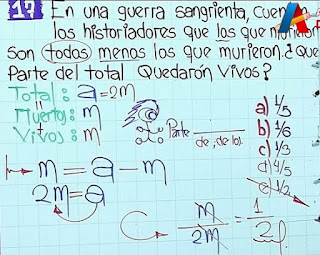 En una guerra sangrienta,
los historiadores que los que murieron
son todos menos los que murieron. ¿Que
Parte del total Quedarón Vivos?
Total: a = 2m
Muertos: m
Vivos: m
Parte
de, del
m = a - m
2m = a
m/2m = 1/2
a) 1/5
b) 1/6
c) 1/3
d) 4/5
e) 1/2